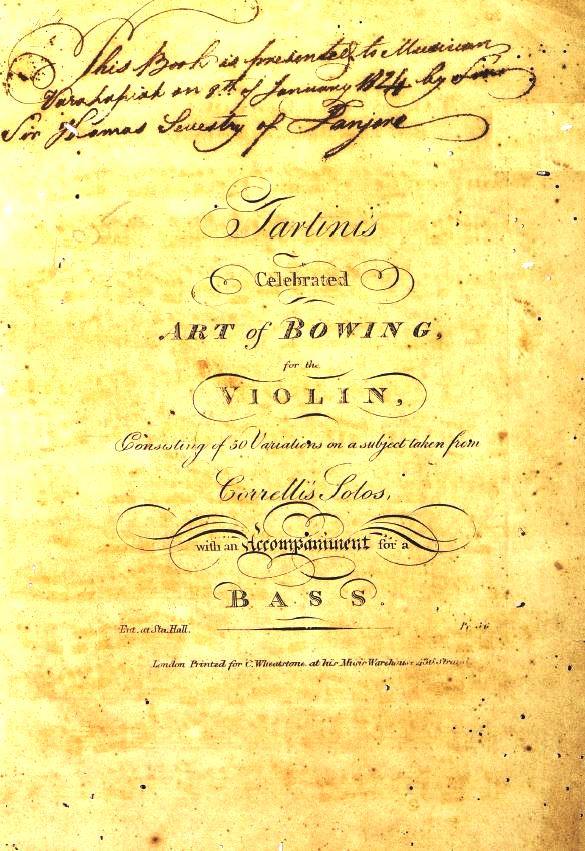 This Book is presented to Musician
Varahapiah on 8.th of January 1824 by
Sir Thomas Sevestry of Tanjore
Tartini's
Celebrated
ART of BOWING,
for the
VIOLIN,
Consisting of 50 Variations on a subject taken from
Correlli's Solos,
with an Accompaniment for a
BASS.
Ent. at Sta. Hall.
Pr.
London Printed for C. Wheatstone at his Music Warehouse 436 Strand